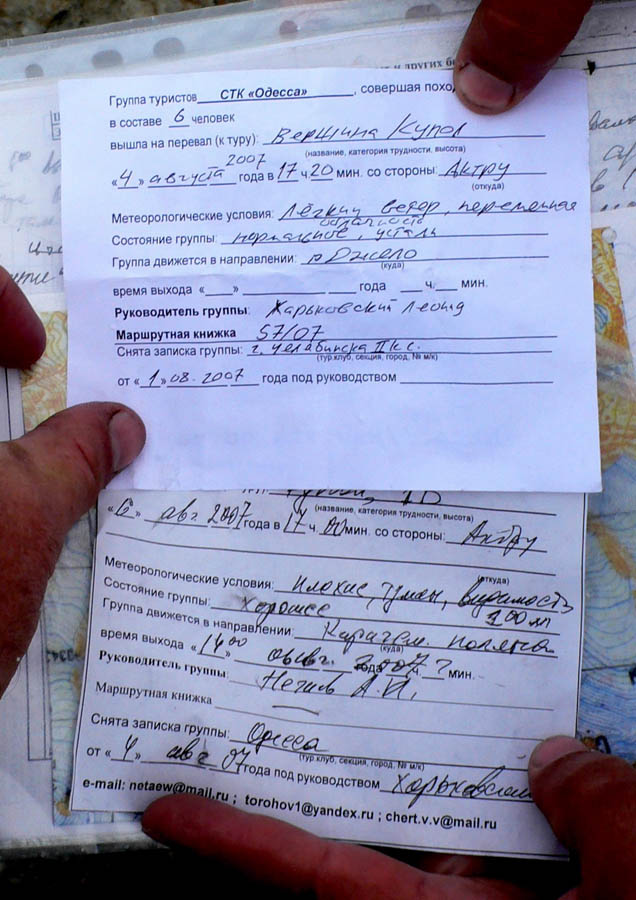 и других
Группа туристов СТК «Одесса», совершая поход
в составе 6 человек
вышла на перевал (к туру): Вершина Купол
(название, категория трудности, высота)
«4» августа 2007 года в 17 ч 20 мин. со стороны: Актру
(откуда)
Метеорологические условия: Лёгкий ветер, переменная
облачность
Состояние группы: нормальное, усталь
Группа движется в направлении: п Джело
(куда)
время выхода «__» ______ ___ года ___ч.___мин.
Руководитель группы: Харьковский Леонид
Маршрутная книжка 57/07
Снята записка группы: г. Челябинска II к.с.
(тур.клуб, секция, город, № м/к)
от «1» 08.2007 года под руководством
Купол,
(название, категория трудности, высота)
«6» авг 2007 года в 17 ч. 00 мин. со стороны: Актру
(откуда)
Метеорологические условия: плохие, туман, видимость
100 м
Состояние группы: хорошее
Группа движется в направлении: Карагем. поляна
(куда)
время выхода «14 00» авг. 2007 года ч ? мин.
Руководитель группы: А.И.
Маршрутная книжка —
Снята записка группы: Одесса
(тур.клуб, секция, город, № м/к)
от «4» авг 07 года под руководством Харьковский
e-mail: netaew@mail.ru ; torohov1@yandex.ru ; chert.v.v@mail.ru